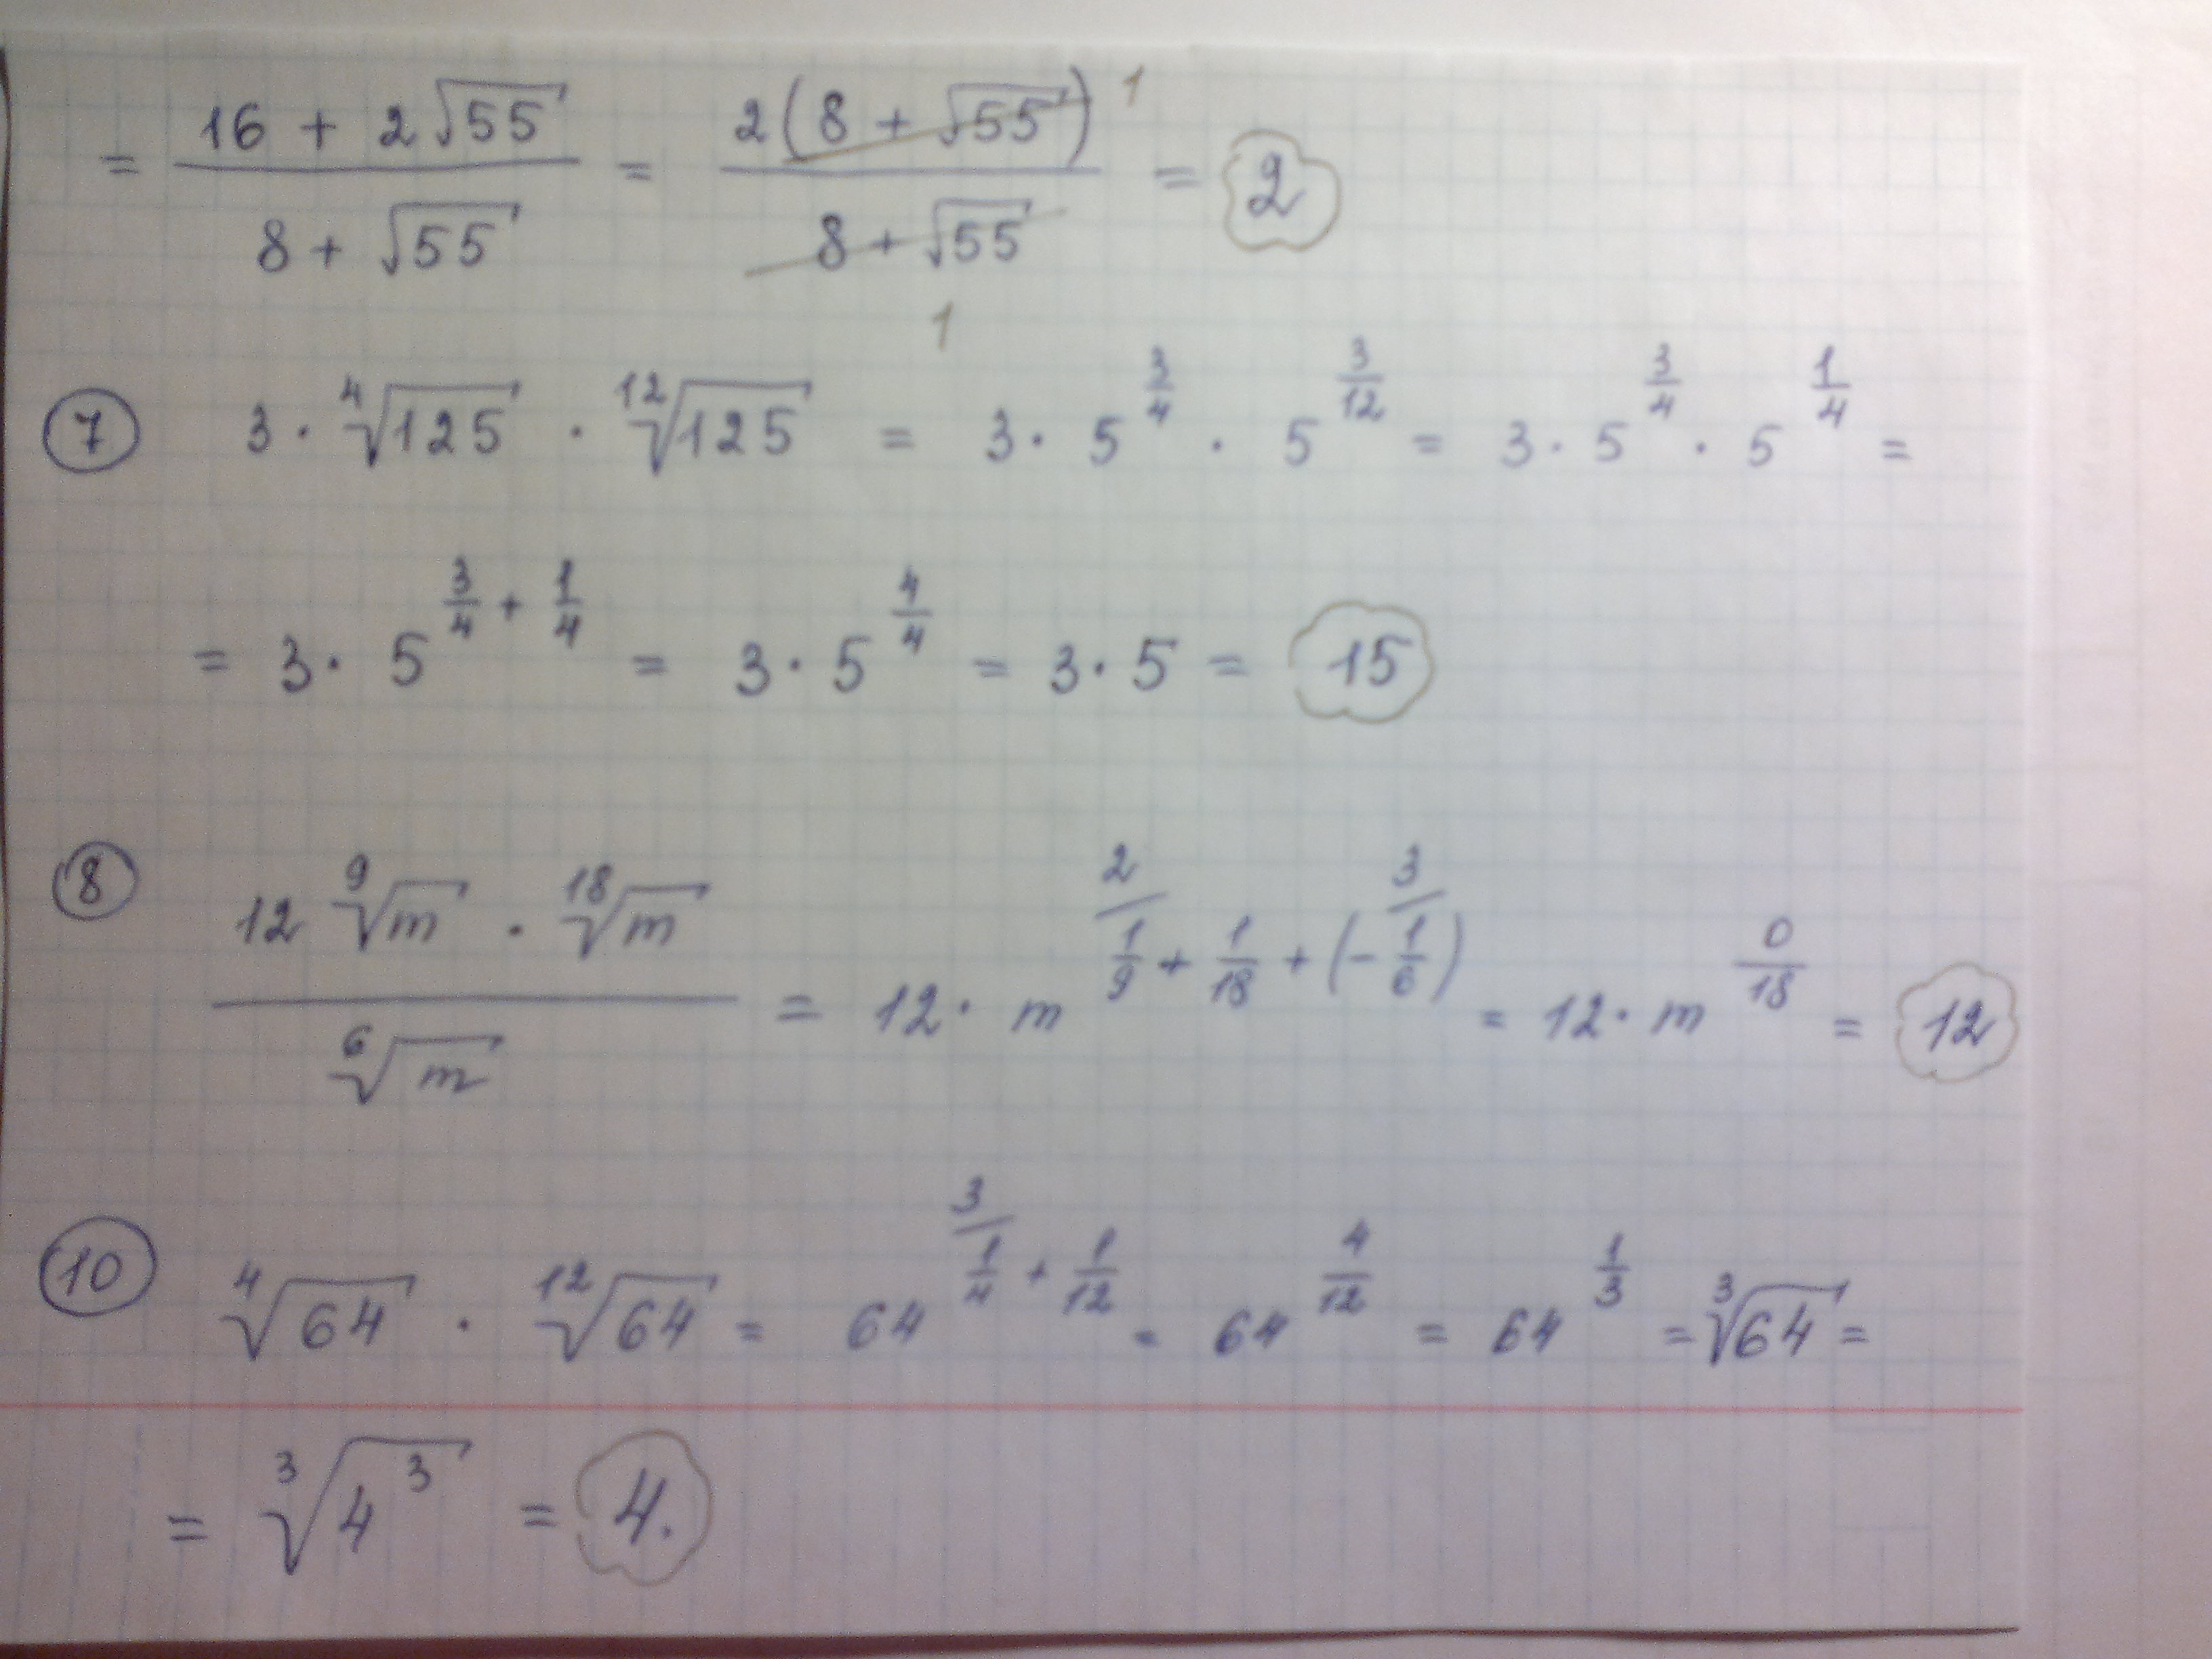 = (16 + 2√55)/(8 + √55) = 2(8 + √55) 1/(8 + √55) 1 = 2
7 3 · ⁴√125 · ¹²√125 = 3 · 5^(3/4) · 5^(3/12) = 3 · 5^(3/4) · 5^(1/4) =
= 3 · 5^(3/4 + 1/4) = 3 · 5^(4/4) = 3 · 5 = 15
8 (12 ⁹√m · ¹⁸√m)/(⁶√m) = 12 · m^(2/ 1/9 + 1/18 + (- 3/ 1/6)) = 12 · m^(0/18) = 12
10 ⁴√64 · ¹²√64 = 64^(3/ 1/4 + 1/12) = 64^(4/12) = 64^(1/3) = ³√64 =
= ³√4³ = 4.